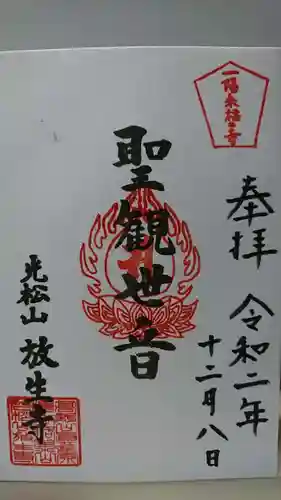 一陽来福之寺
奉拝
令和二年
十二月八日
聖観世音
光松山
放生寺